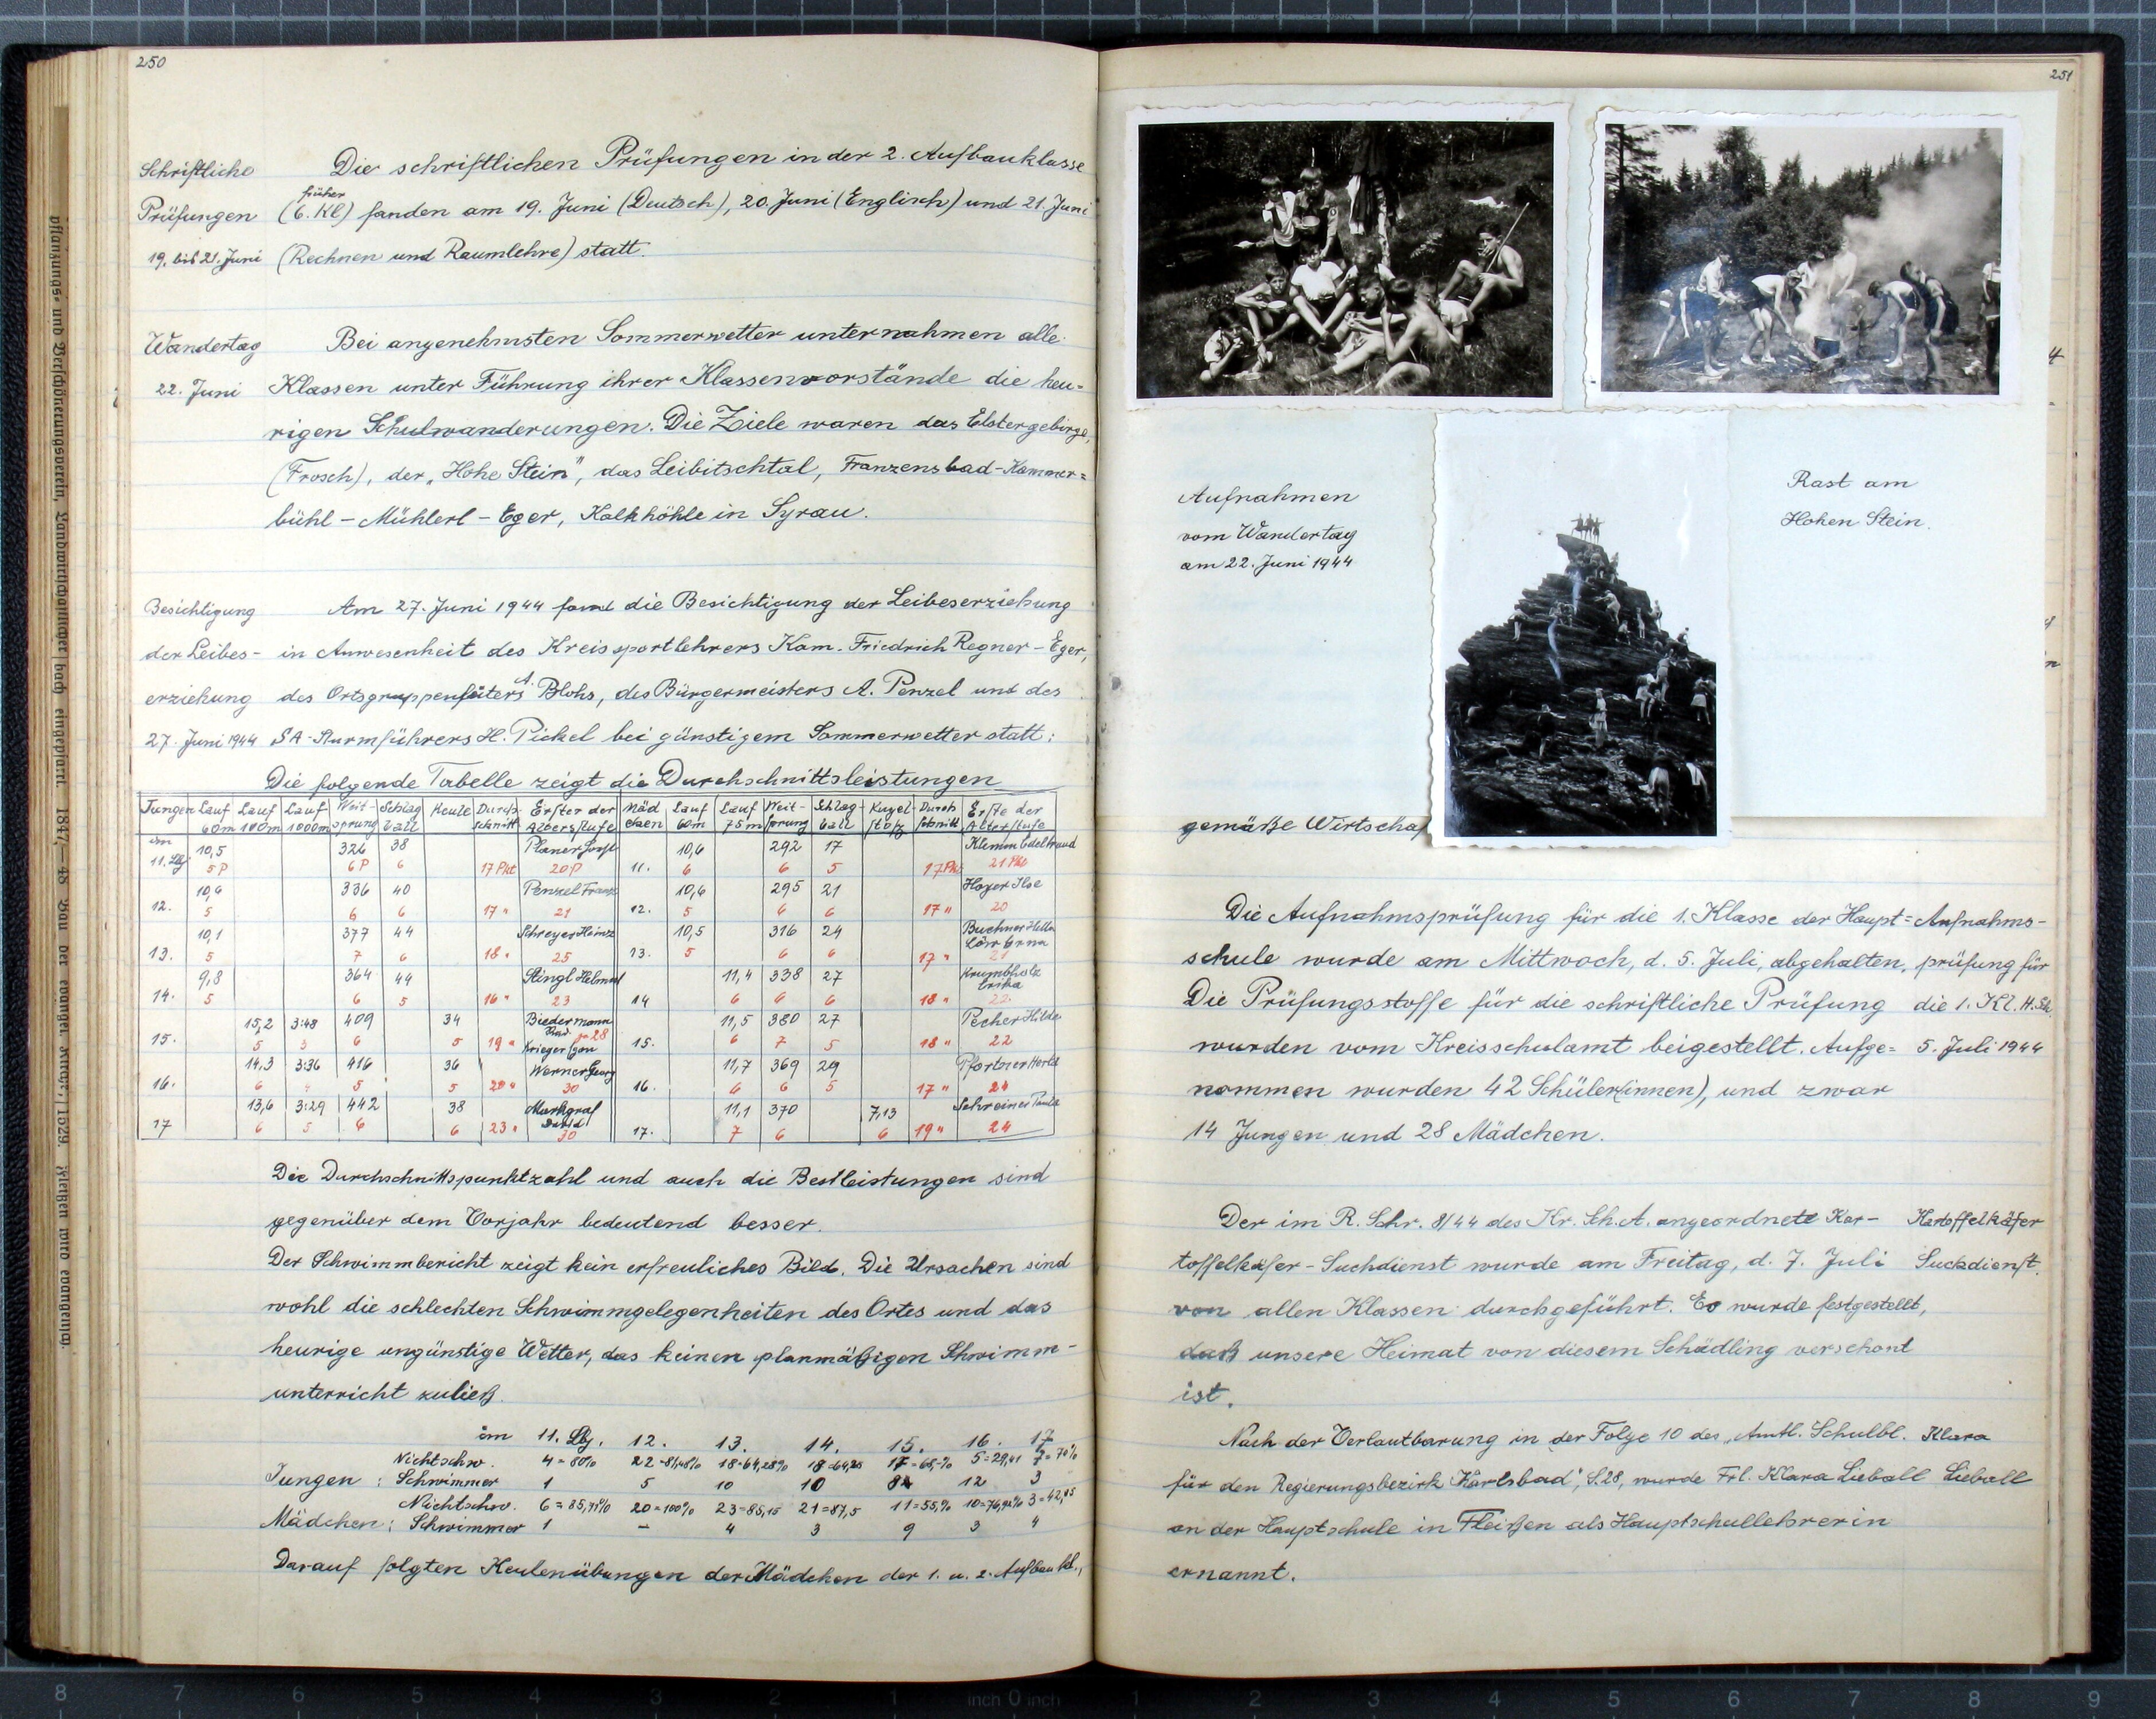 250
Schriftliche
Prüfungen
19. bis 21. Juni
Die schriftlichen Prüfungen in der 2. Aufbauklasse
früher
(6. Kl) fanden am 19. Juni (Deutsch), 20. Juni (Englisch) und 21. Juni
(Rechnen und Raumlehre) statt.
Wandertag
22. Juni
Bei angenehmsten Sommerwetter unternahmen alle
Klassen unter Führung ihrer Klassenvorstände die heu=
rigen Schulwanderungen. Die Ziele waren das Elstergebirge,
(Frosch), der „Hohe Stein", das Leibitschtal, Franzensbad-Kammer=
bühl – Mühlerl – Eger, Kalkhöhle in Syrau.
Besichtigung
der Leibes-
erziehung
27. Juni 1944
Am 27. Juni 1944 fand die Besichtigung der Leibeserziehung
in Anwesenheit des Kreissportlehrers Kam. Friedrich Regner – Eger,
des Ortsgruppenleiters A. Blohs, des Bürgermeisters A. Penzel und des
SA-Sturmführers H. Pickel bei günstigem Sommerwetter statt:
Die folgende Tabelle zeigt die Durchschnittsleistungen
Jungen Lauf 60m Lauf 100m Lauf 1000m Weitsprung Schlagball Keule Durchschnitt Erster der Altersstufe Mädchen Lauf 60m Lauf 75m Weitsprung Schlagball Kugelstoß Durchschnitt Erste der Altersstufe
im 10,5 326 38 Planer 10,6 292 17 Klemm Edeltraud
11. Lbj 5P 6P 6 17 Pkt 20P 11. 6 6 5 17 Pkt 21 Pkt
10,4 336 40 Penzel Franz 10,6 295 21 Hoyer Ilse
12. 5 6 6 17 " 21 12. 5 6 6 17 " 20
10,1 377 44 Schreyer Heinz 10,5 316 24 Buchner Hella Löw Erna
13. 5 7 6 18 " 25 13. 5 6 6 17 " 21
9,8 364 44 Stingl Helmut 11,4 338 27 Krumbholz Erika
14. 5 6 5 16 " 23 14 6 6 6 18 " 22
15,2 3:48 409 34 Biedermann 11,5 380 27 Pecher Hilde
15. 5 3 6 5 19 " Krieger Egon je 28 15. 6 7 5 18 " 22
14,3 3:36 416 36 Werner Georg 11,7 369 29 Pfortner Herta
16. 6 4 5 5 20 " 30 16. 6 6 5 17 " 24
13,6 3:29 442 38 Markgraf David 11,1 370 7,13 Schreiner Paula
17 6 5 6 6 23 " 30 17. 7 6 6 19 " 24
Die Durchschnittspunktzahl und auch die Bestleistungen sind
gegenüber dem Vorjahr bedeutend besser.
Der Schwimmbericht zeigt kein erfreuliches Bild. Die Ursachen sind
wohl die schlechten Schwimmgelegenheiten des Ortes und das
heurige ungünstige Wetter, das keinen planmäßigen Schwimm-
unterricht zuließ.
im 11. Lbj. 12. 13. 14. 15. 16. 17
Nichtschw. 4=80% 22=81,48% 18=64,28% 18=64,28 17=68,-% 5=29,41 7=70%
Jungen: Schwimmer 1 5 10 10 8 12 3
Nichtschw. 6=85,71% 20=100% 23=85,15 21=87,5 11=55,% 10=76,92% 3=42,85
Mädchen: Schwimmer 1 – 4 3 9 3 4
Darauf folgten Keulenübungen der Mädchen der 1. u. 2. Aufbaukl.,
251
Aufnahmen
vom Wandertag
am 22. Juni 1944
Rast am
Hohen Stein.
gemäße Wirtschaf
Die Aufnahmsprüfung für die 1. Klasse der Haupt=
schule wurde am Mittwoch, d. 5. Juli, abgehalten.
Die Prüfungsstoffe für die schriftliche Prüfung
wurden vom Kreisschulamt beigestellt. Aufge=
nommen wurden 42 Schüler(innen), und zwar
14 Jungen und 28 Mädchen.
Aufnahms-
prüfung für
die 1. Kl. H. Sch.
5. Juli 1944
Der im R. Schr. 8/44 des Kr. Sch. A. angeordnete Kar-
toffelkäfer-Suchdienst wurde am Freitag, d. 7. Juli
von allen Klassen durchgeführt. Es wurde festgestellt,
daß unsere Heimat von diesem Schädling verschont
ist.
Kartoffelkäfer
Suchdienst.
Nach der Verlautbarung in der Folge 10 des „Amtl. Schulbl.
für den Regierungsbezirk Karlsbad", S. 28, wurde Frl. Klara Lieball
an der Hauptschule in Fleißen als Hauptschullehrerin
ernannt.
Klara
Lieball
8 7 6 5 4 3 2 1 inch 0 inch 1 2 3 4 5 6 7 8 9